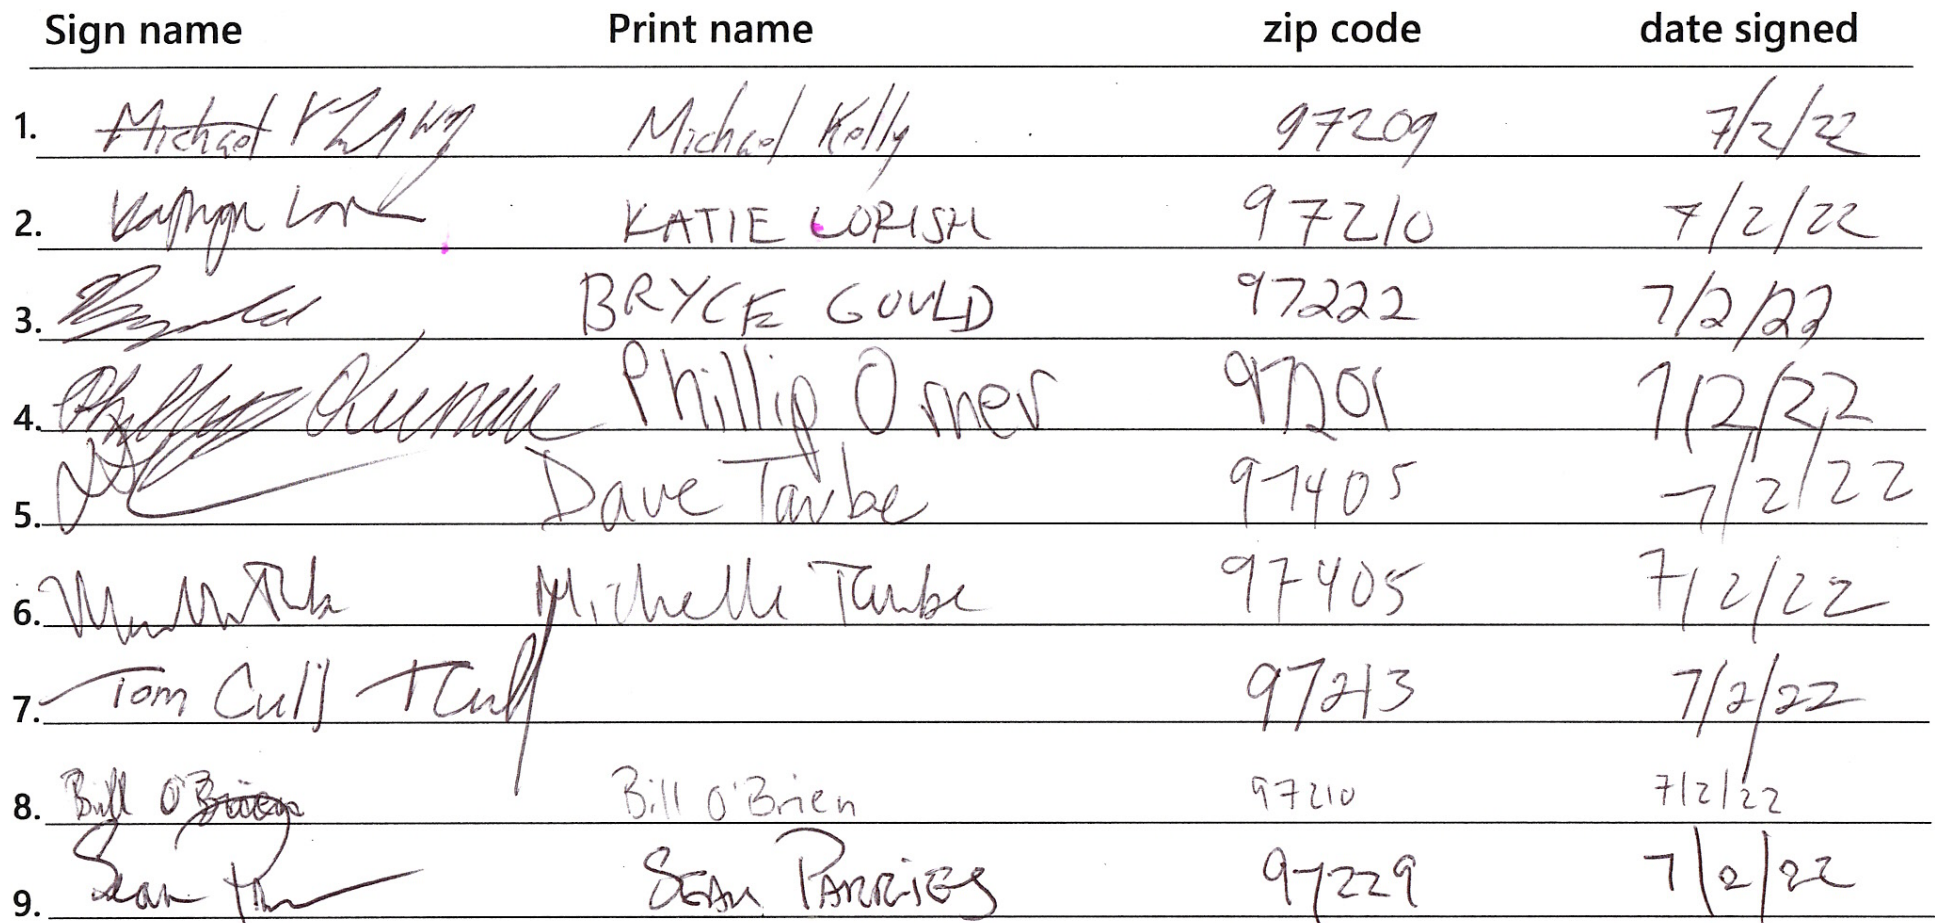 Sign name Print name zip code date signed
1. Michael Michael Kelly 97209 7/2/22
2. Kathryn KATIE LORISH 97210 7/2/22
3. BRYCE GOULD 97222 7/2/22
4. Phillip Phillip Omer 97201 7/2/22
5. Dave Taube 97405 7/2/22
6. Michelle Taube 97405 7/2/22
7. Tom Cull T Cull 97213 7/2/22
8. Bill O'Brien Bill O'Brien 97210 7/2/22
9. Sean SEAN PARRIES 97229 7/2/22